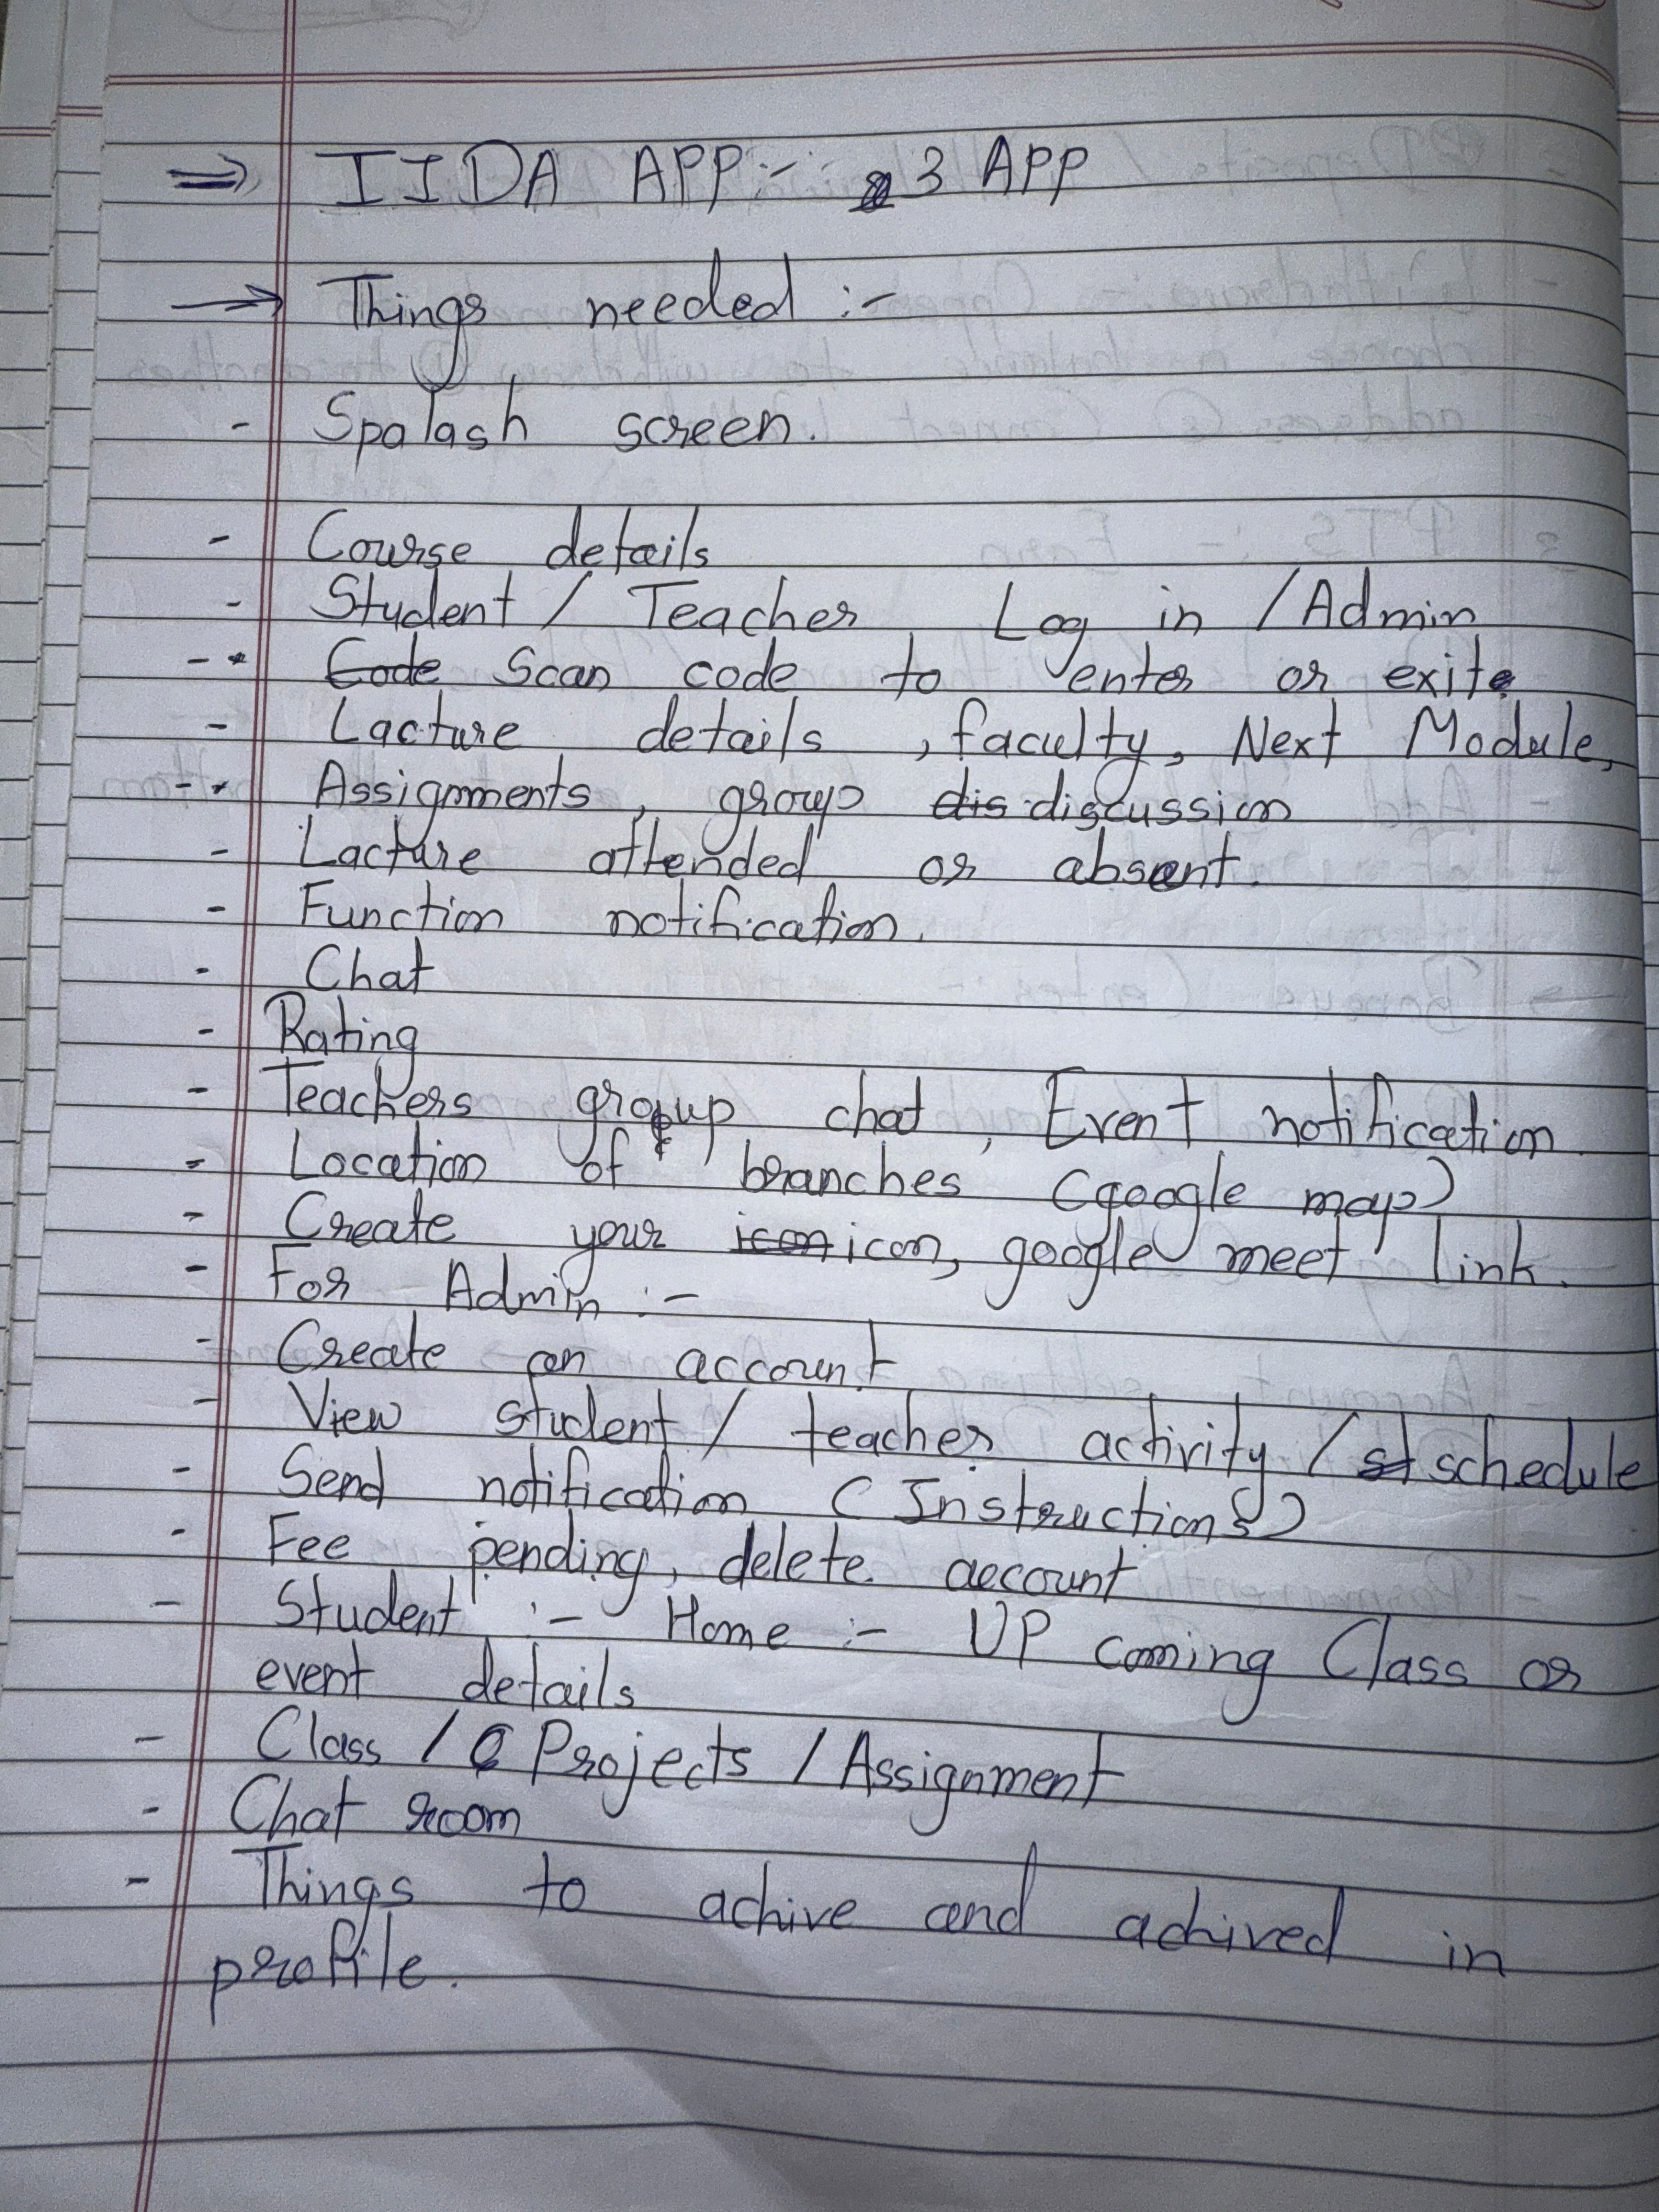 ⇒ IIDA APP:- 3 APP
→ Things needed :-
- Spalash screen.
- Course details
- Student / Teacher Log in / Admin
- Code Scan code to enter or exite
- Lacture details , faculty, Next Module,
- Assignments, group dis discussion
- Lacture attended or absent.
- Function notification.
- Chat
- Rating
- Teachers group chat, Event notification
- Location of branches (google map)
- Create your icon icon, google meet link.
- For Admin :-
- Create an account
- View student / teacher activity / st schedule
- Send notification (Instructions)
- Fee pending, delete account
- Student :- Home :- UP coming Class or
event details
- Class / Projects / Assignment
- Chat room
- Things to achive and achived in
profile.